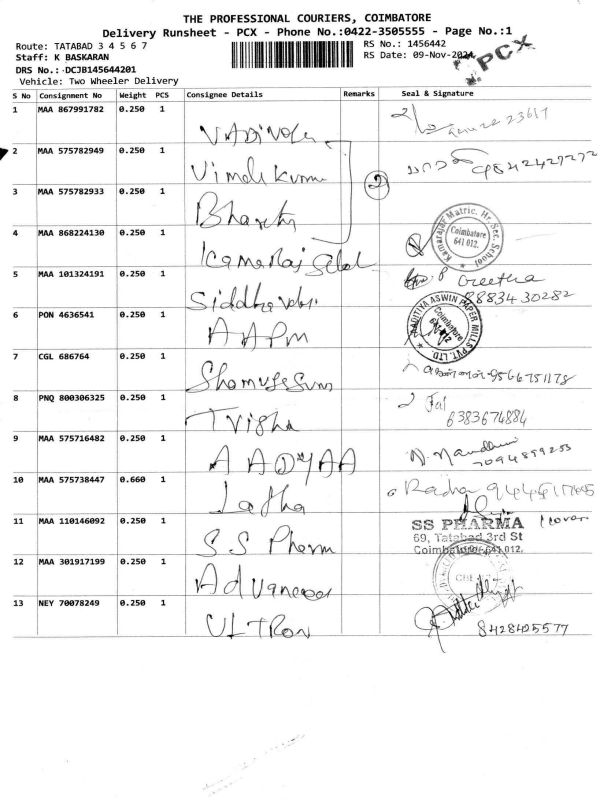 THE PROFESSIONAL COURIERS, COIMBATORE
Delivery Runsheet - PCX - Phone No.:0422-3505555 - Page No.:1
Route: TATABAD 3 4 5 6 7
RS No.: 1456442
Staff: K BASKARAN
RS Date: 09-Nov-2024
PCX
DRS No.: DCJB145644201
Vehicle: Two Wheeler Delivery
S No Consignment No Weight PCS Consignee Details Remarks Seal & Signature
1 MAA 867991782 0.250 1
2 MAA 575782949 0.250 1 Vimalkumar
3 MAA 575782933 0.250 1 Bharath 2
4 MAA 868224130 0.250 1 Kamaraj
Kamarajar Matric. Hr. Sec. School
Coimbatore
641 012.
5 MAA 101324191 0.250 1 Geetha
88834 30282
6 PON 4636541 0.250 1 AAPM
AADITYA ASWIN PAPER MILLS PVT. LTD.
Coimbatore
7 CGL 686764 0.250 1 9566751178
8 PNQ 800306325 0.250 1 Trisha
6383674884
9 MAA 575716482 0.250 1 AADYAA N. Nandhini
7094899255
10 MAA 575738447 0.660 1 Latha Radha
11 MAA 110146092 0.250 1 SS Pharm
SS PHARMA
69, Tatabad 3rd St
Coimbatore-641 012.
12 MAA 301917199 0.250 1
13 NEY 70078249 0.250 1 ULTRON
8428425577